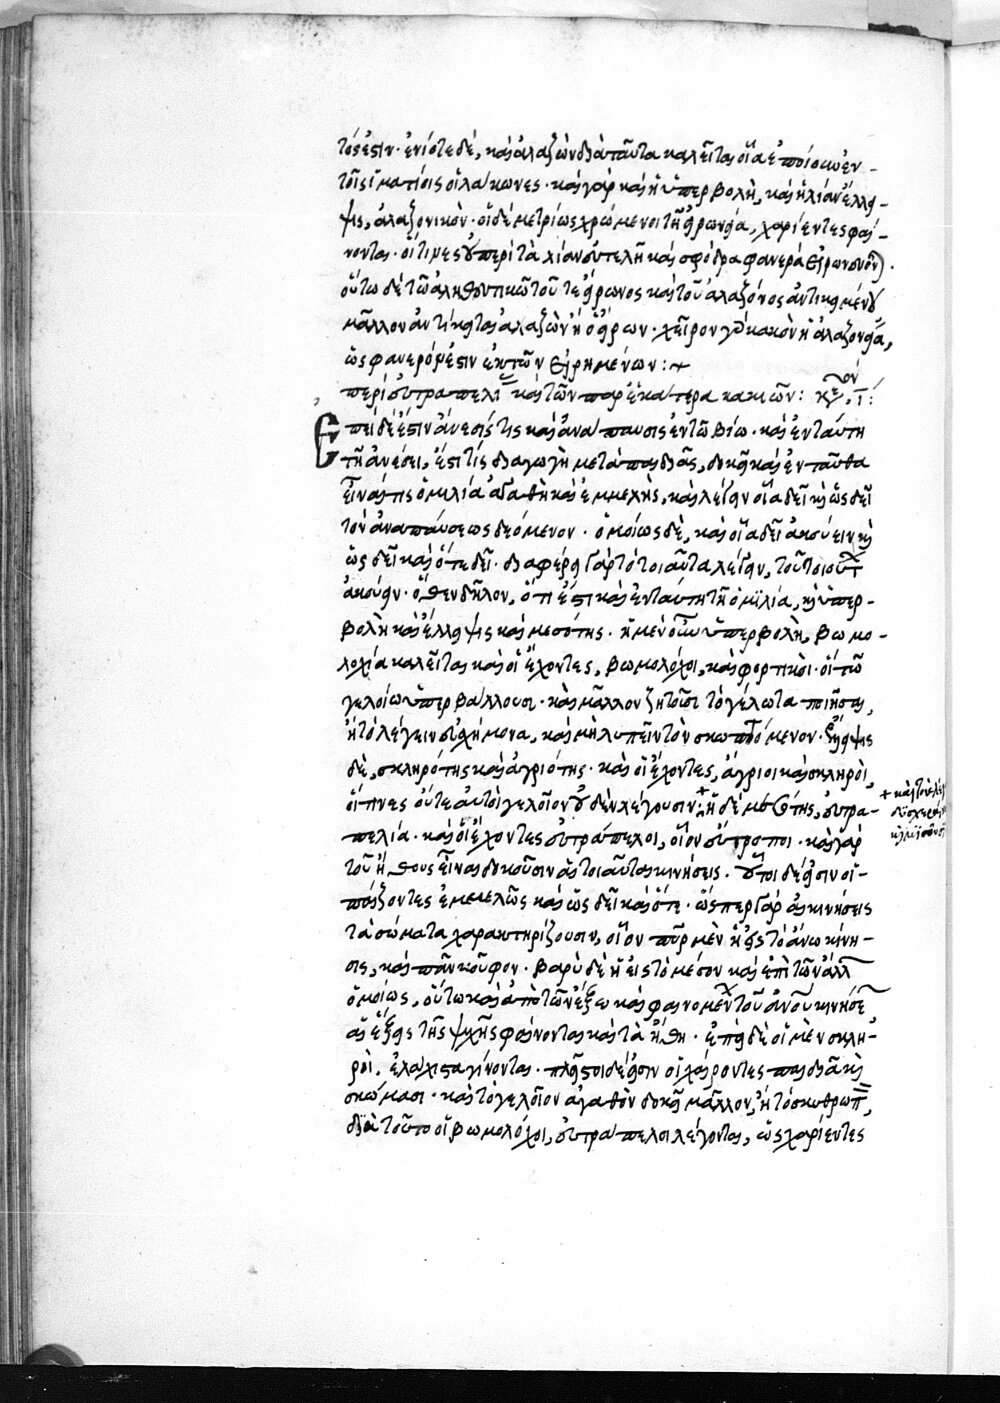 τός ἐστιν· ἐνίοτε δὲ, καὶ ἀλαζὼν διὰ ταῦτα καλεῖται οἷα ἐποίουν ἐν
τοῖς ἱματίοις οἱ λάκωνες· καὶ γὰρ καὶ ἡ ὑπερβολὴ, καὶ ἡ λίαν ἔλλει-
ψις, ἀλαζονικόν· οἱ δὲ μετρίως χρώμενοι τῇ εἰρωνεία, χαρίεντες φαί-
νονται· οἵτινες οὐ περὶ τὰ λίαν εὐτελῆ καὶ σφόδρα φανερὰ εἰρωνεύον).
οὕτω δὲ τῶ ἀληθευτικῶ τοῦ τε εἴρωνος καὶ τοῦ ἀλαζόνος ἀντικειμένου
μᾶλλον ἀντίκειται ὁ ἀλαζὼν ἢ ὁ εἴρων· χεῖρον γὰρ κακὸν ἡ ἀλαζονεία,
ὡς φανερόν ἐστιν ἐκ τῶν εἰρημένων :~
περὶ εὐτραπελί καὶ τῶν παρ' ἑκάτερα κακιῶν : κεφ
Ἐπεὶ δέ ἐστιν ἄνεσίς τις καὶ ἀνάπαυσις ἐν τῶ βίω· καὶ ἐν ταύτη
τῇ ἀνέσει, ἔστι τίς διαγωγὴ μετὰ παιδιᾶς, δοκεῖ καὶ ἐνταῦθα
εἶναί τις ὁμιλία ἀγαθὴ καὶ ἐμμελὴς, καὶ λέγειν οἷα δεῖ καὶ ὡς δεῖ
τὸν ἀναπαύσεως δεόμενον· ὁμοίως δὲ, καὶ οἷα δεῖ ἀκούειν καὶ
ὡς δεῖ καὶ ὅτε δεῖ· διαφέρει γὰρ τὸ τοιαῦτα λέγειν, τοῦ τοιούτ
ἀκούειν· ὅθεν δῆλον, ὅτι ἔστι καὶ ἐν ταύτη τῇ ὁμιλία, καὶ ὑπερ-
βολὴ καὶ ἔλλειψις καὶ μεσότης· ἡ μὲν οὖν ὑπερβολὴ, βωμο-
λοχία καλεῖται καὶ οἱ ἔχοντες, βωμολόχοι, καὶ φορτικοὶ· οἳ τῶ
γελοίω ὑπερβάλλουσι· καὶ μᾶλλον ζητοῦσι τὸ γέλωτα ποιῆσαι,
ἢ τὸ λέγειν εὐσχήμονα, καὶ μὴ λυπεῖν τὸν σκωπτόμενον· ἔλλειψις
δὲ, σκληρότης καὶ ἀγριότης· καὶ οἱ ἔχοντες, ἄγριοι καὶ σκληροὶ,
οἵτινες οὔτε αὐτοὶ γελοῖον οὐδὲν λέγουσιν + ἡ δὲ μεσότης, εὐτρα-
+ καὶ τοῖς
δυσχεραίν
πελία· καὶ οἱ ἔχοντες εὐτράπελοι, οἷον εὔτροποι· καὶ γὰρ
τοῦ ἤθους εἶναι δοκοῦσιν αἱ τοιαῦται κινήσεις· οὗτοι δέ εἰσιν οἱ
παίζοντες ἐμμελῶς καὶ ὡς δεῖ καὶ ὅτε· ὥσπερ γὰρ αἱ κινήσεις
τὰ σώματα χαρακτηρίζουσιν, οἷον πῦρ μὲν ἡ εἰς τὸ ἄνω κίνη-
σις, καὶ πᾶν κοῦφον· βαρὺ δὲ ἡ εἰς τὸ μέσον καὶ ἐπὶ τῶν ἄλλ
ὁμοίως, οὕτω καὶ ἀπὸ τῶν ἔξω καὶ φαινομέν τοῦ ἀνοῦ κινήσε
αἱ ἕξεις τῆς ψυχῆς φαίνονται καὶ τὰ ἤθη· ἐπεὶ δὲ οἱ μὲν σκλη-
ροὶ, ἐλάχιστα γίνονται· πλεῖστοι δέ εἰσιν οἱ χαίροντες παιδιᾶ καὶ
σκώμασι· καὶ τὸ γελοῖον ἀγαθὸν δοκεῖ μᾶλλον, ἢ τὸ σκυθρωπ,
διὰ τοῦτο οἱ βωμολόχοι, εὐτράπελοι λέγονται, ὡς χαρίεντες